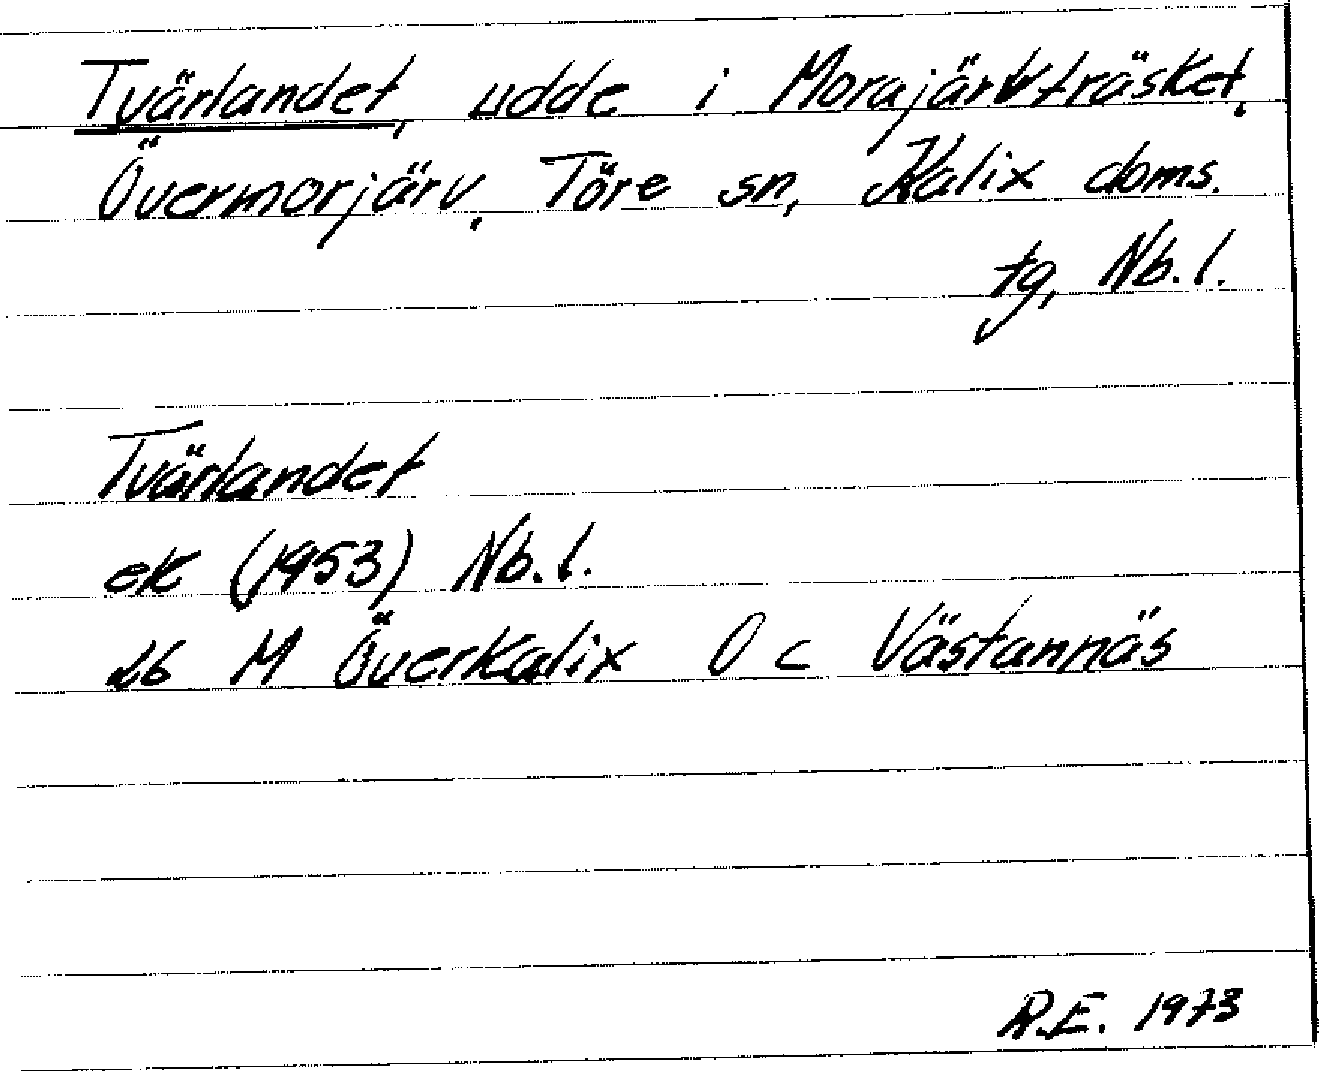 Tvärlandet, udde i Morajärvträsket.
Övermorjärv, Töre sn, Kalix doms.
tg, Nb. l.
Tvärlandet
ek (1953) Nb. l.
26 M Överkalix 0 c Västannäs
R.E. 1973